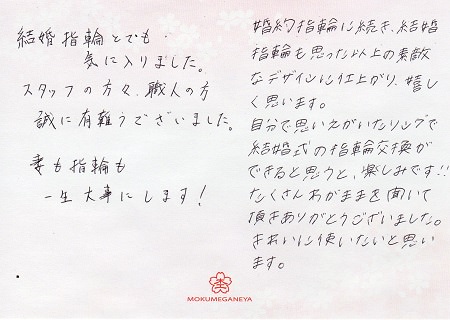 結婚指輪とても
気に入りました。
スタッフの方々、職人の方
誠に有難うございました。
妻も指輪も
一生大事にします!
婚約指輪に続き、結婚
指輪も思った以上の素敵
なデザインに仕上がり、嬉し
く思います。
自分で思いえがいたリングで
結婚式の指輪交換が
できると思うと、楽しみです!!
たくさんわがままを聞いて
頂きありがとうございました。
きれいに使いたいと思い
ます。
MOKUMEGANEYA